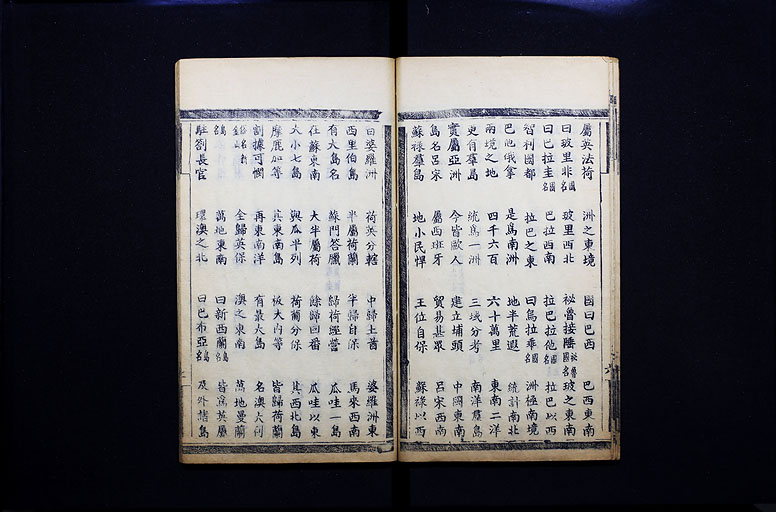 屬英法荷 洲之東境 國曰巴西 巴西東南
曰玻里非國名 玻里西北 祕魯接陲祕魯國名 玻之東南
曰巴拉圭國名 巴拉西南 拉巴拉他國名 拉巴以西
智利國都 拉巴之東 曰烏拉乖國名 洲極南境
巴他峨拿 是爲南洲 地半荒遐 統計南北
兩境之地 四千六百 六十萬里 東南二洋
更有羣島 統爲一洲 三域分考 南洋羣島
實屬亞洲 今皆歐人 建立埔頭 中國東南
島名呂宋 屬西班牙 貿易甚眾 呂宋西南
蘇祿羣島 地小民悍 王位自保 蘇祿以西
曰婆羅洲 荷英分轄 中歸土酋 婆羅洲東
西里伯島 半屬荷蘭 半歸自保 馬來西南
有大島名 蘇門答臘 歸荷經營 瓜哇一島
在蘇東南 大半屬荷 餘歸回番 瓜哇以東
大小七島 與瓜半列 荷蘭分保 其西北島
摩鹿加等 其東南島 板大內等 皆歸荷蘭
割據可憫 再東南洋 有最大島 名澳大利
俗名新金山 全歸英保 澳之東南 萬地曼蘭
島名 萬地東南 曰新西蘭島名 皆爲英屬
駐劄長官 環澳之北 曰巴布亞島名 及外諸島